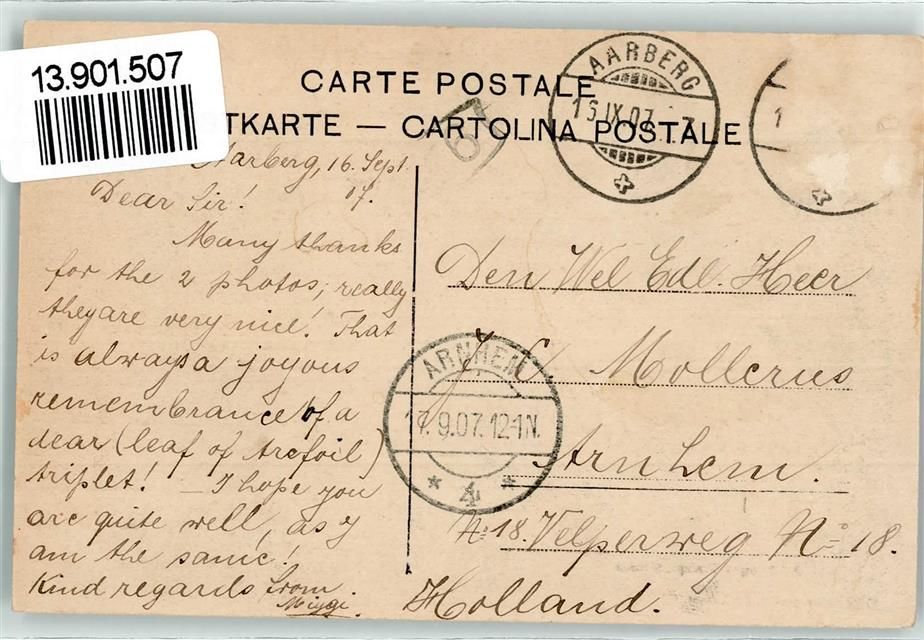 13.901.507
CARTE POSTALE
TKARTE — CARTOLINA POSTALE
AARBERG
16.IX.07. 7
1
Aarberg, 16. Sept.
07.
Dear Sir!
Many thanks
for the 2 photos; really
they are very nice! That
is always a joyous
remembrance of a
dear (leaf of trefoil)
triplet! — I hope you
are quite well, as I
am the same!
Kind regards from
Miggi.
Den Wel Edl. Heer
J C Mollerus
Arnhem.
No 18. Velperweg No 18.
Holland.
ARNHEM
7.9.07.12-1N.
* 4 *